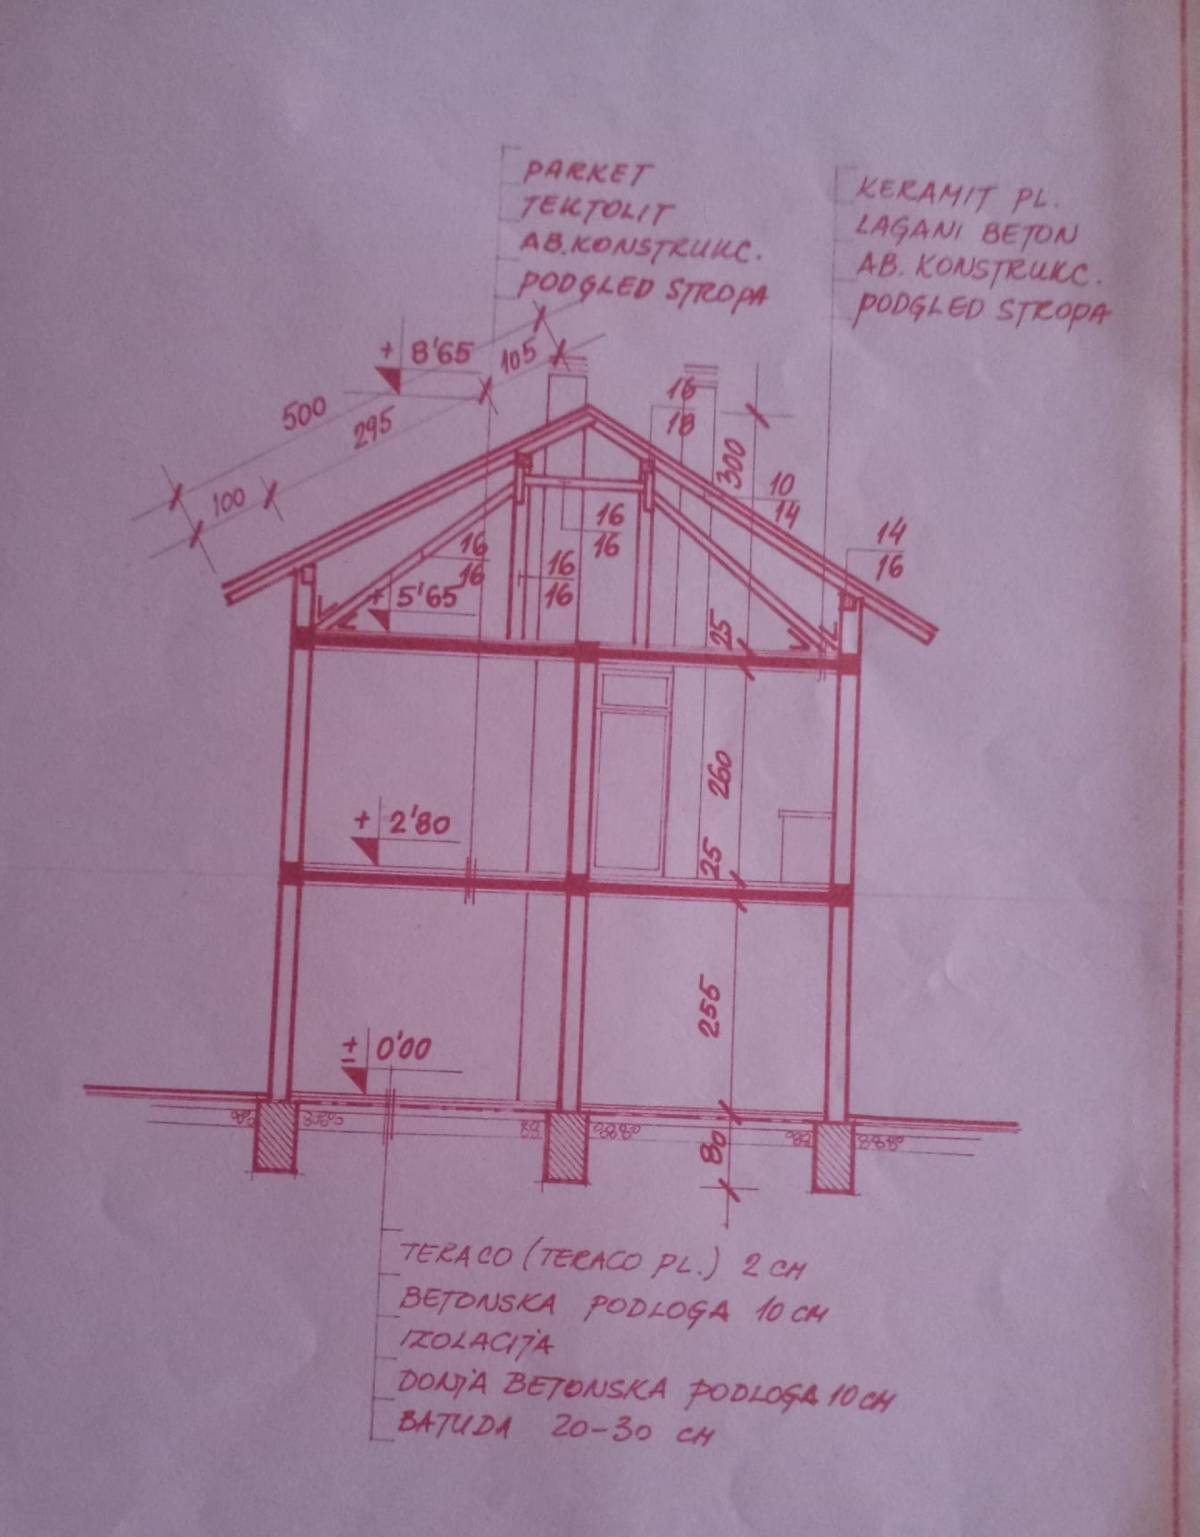 PARKET
TEKTOLIT
AB.KONSTRUKC.
PODGLED STROPA
KERAMIT PL.
LAGANI BETON
AB. KONSTRUKC.
PODGLED STROPA
+ 8'65
105
500
295
100
16
18
300
10
14
14
16
16
16
16
16
16
16
+ 5'65
25
260
+ 2'80
25
255
± 0'00
80
TERACO (TERACO PL.) 2 CM
BETONSKA PODLOGA 10 CM
IZOLACIJA
DONJA BETONSKA PODLOGA 10 CM
BATUDA 20-30 CM